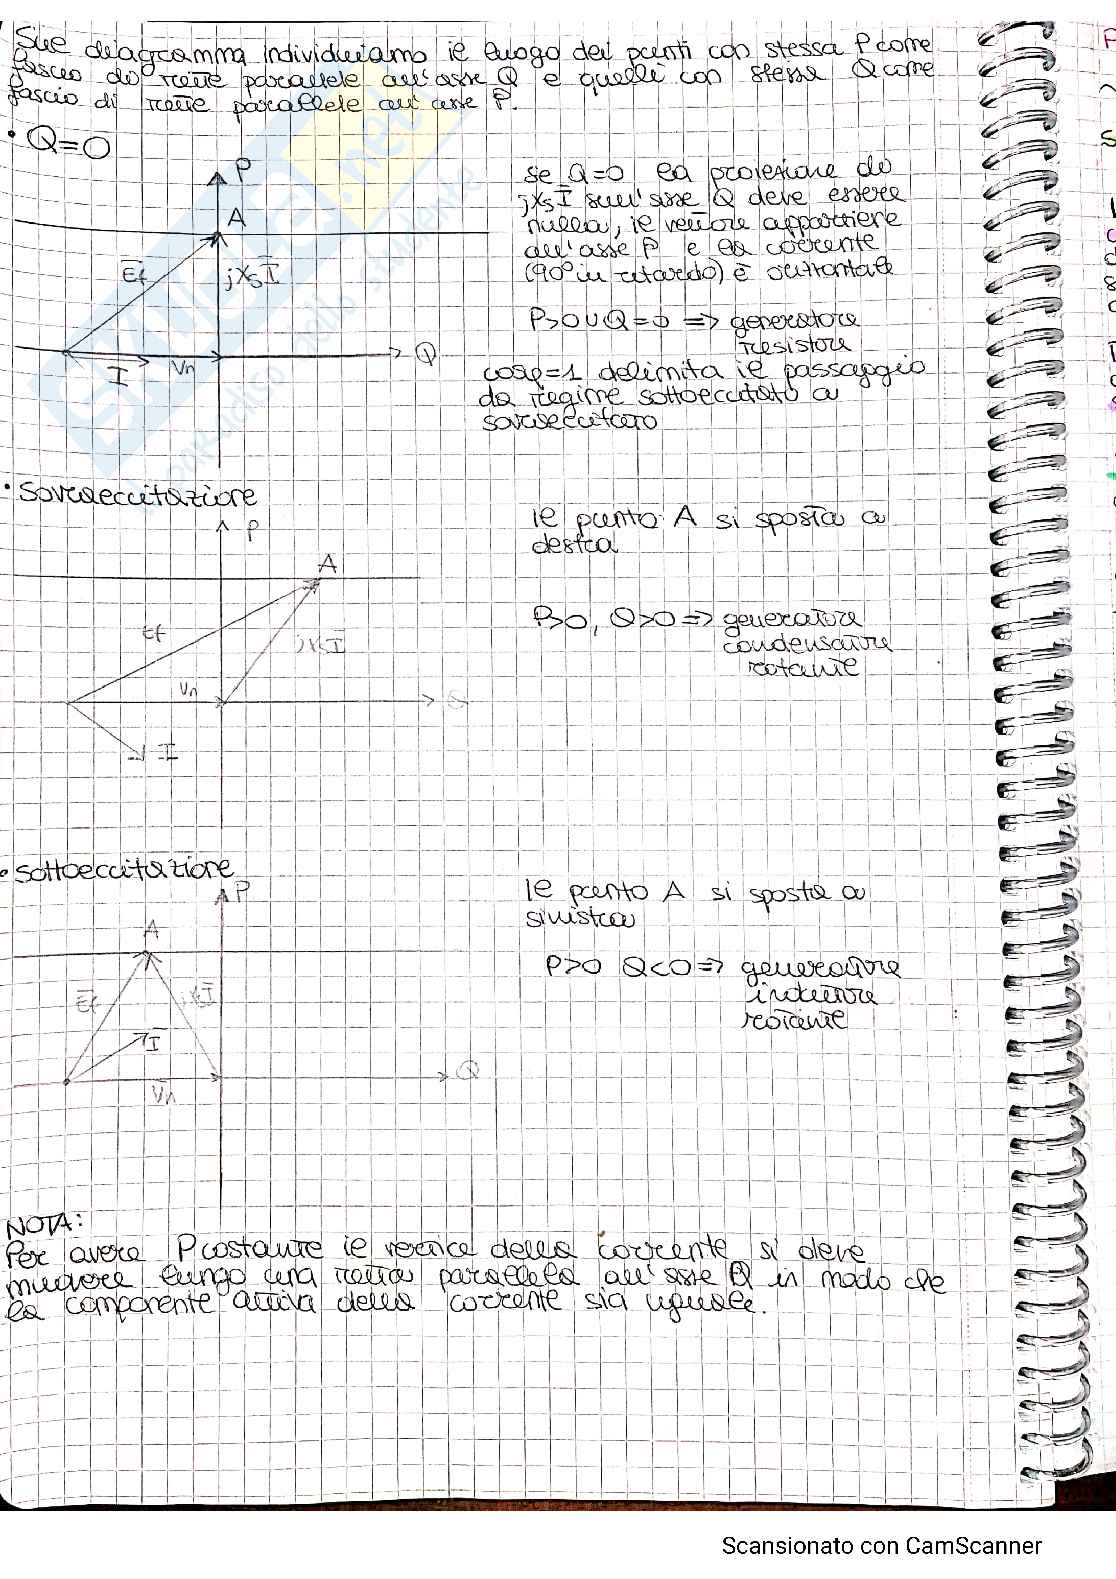 Sul diagramma individuiamo il luogo dei punti con stessa P come
fascio di rette parallele all'asse Q e quelli con stessa Q come
fascio di rette parallele all'asse P.
• Q=0
P
A
Ēf
jXsĪ
I
Vn
Q
se Q=0 la proiezione di
jXsĪ sull'asse Q deve essere
nulla, il vettore appartiene
all'asse P e la corrente
(90° in ritardo) è orizzontale
P>0 ∪ Q=ϕ => generatore
resistore
cosφ=1 delimita il passaggio
da regime sottoeccitato a
sovraeccitato
• sovraeccitazione
P
A
Ef
jXsĪ
Vn
Q
Ī
il punto A si sposta a
destra
P>0, Q>0 => generatore
condensatore
rotante
• sottoeccitazione
P
A
Ēf
jXsĪ
Ī
V̄n
Q
il punto A si sposta a
sinistra
P>0 Q<0 => generatore
induttore
rotante
NOTA:
Per avere P costante il vertice della corrente si deve
muovere lungo una retta parallela all'asse Q in modo che
la componente attiva della corrente sia uguale.
Scansionato con CamScanner